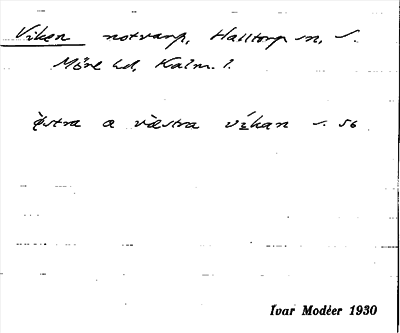 Viken notvarp, Halltorp sn, S.
Möre hd, Kalm. l.
östra o västra víkan s. 56
Ivar Modéer 1930